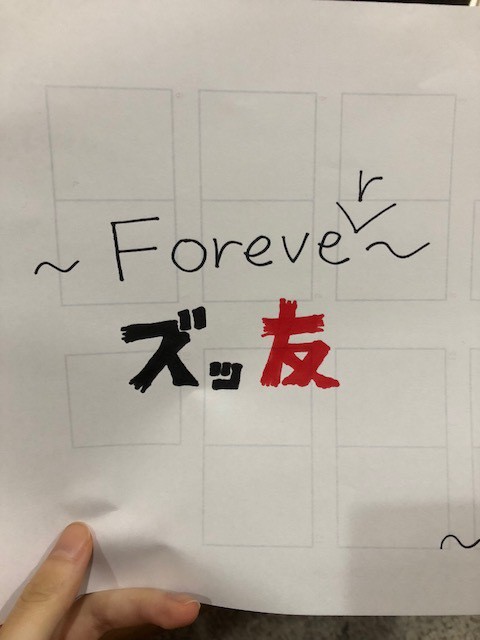 ~ Forever ~
ズッ友
~